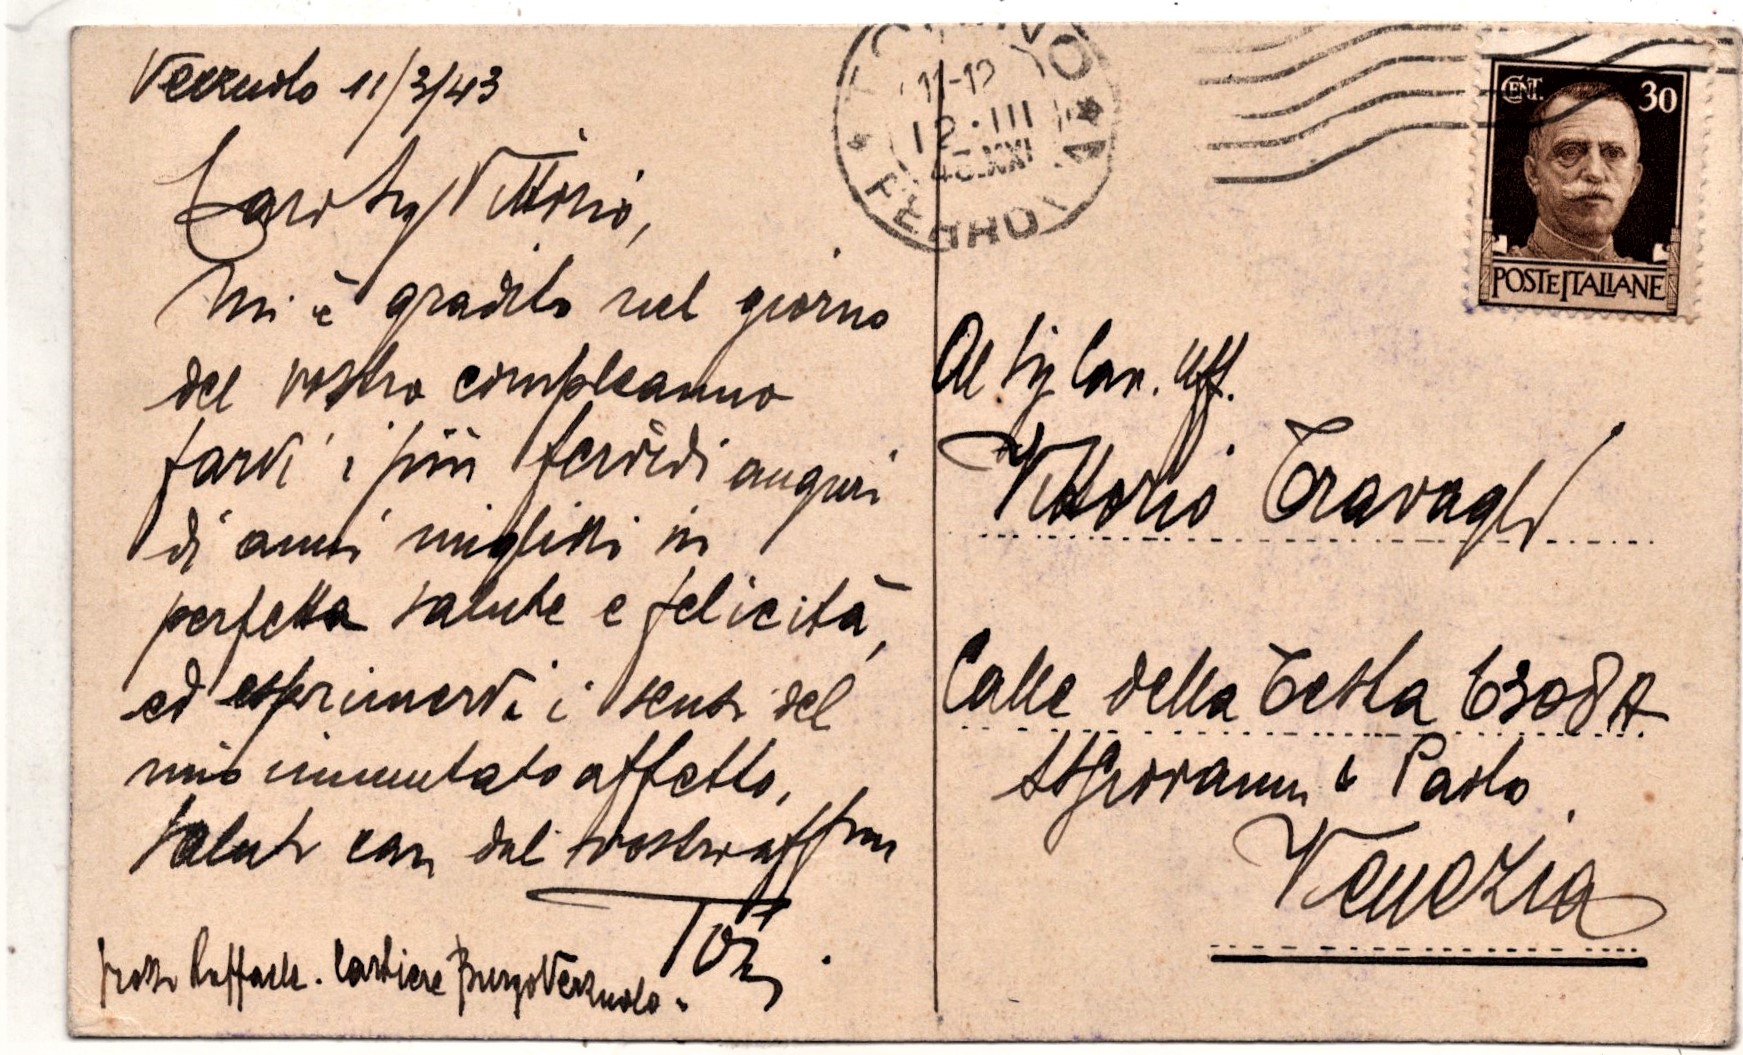 Verzuolo 11/3/43
Caro Sig Vittorio,
Mi è gradito nel giorno
del vostro compleanno
farvi i più fervidi auguri
di anni migliori in
perfetta salute e felicità,
ed esprimervi i sensi del
mio immutato affetto.
Saluti cari dal vostro aff/mo
Raffaele. Cartiere Burgo Verzuolo.
TORINO
11-12
12·III
43.XXI
FERROVIA
CENT. 30
POSTE ITALIANE
Al Sig Cav. Uff.
Vittorio Travagli
Calle della Testa 6308A
SSGiovanni e Paolo
Venezia